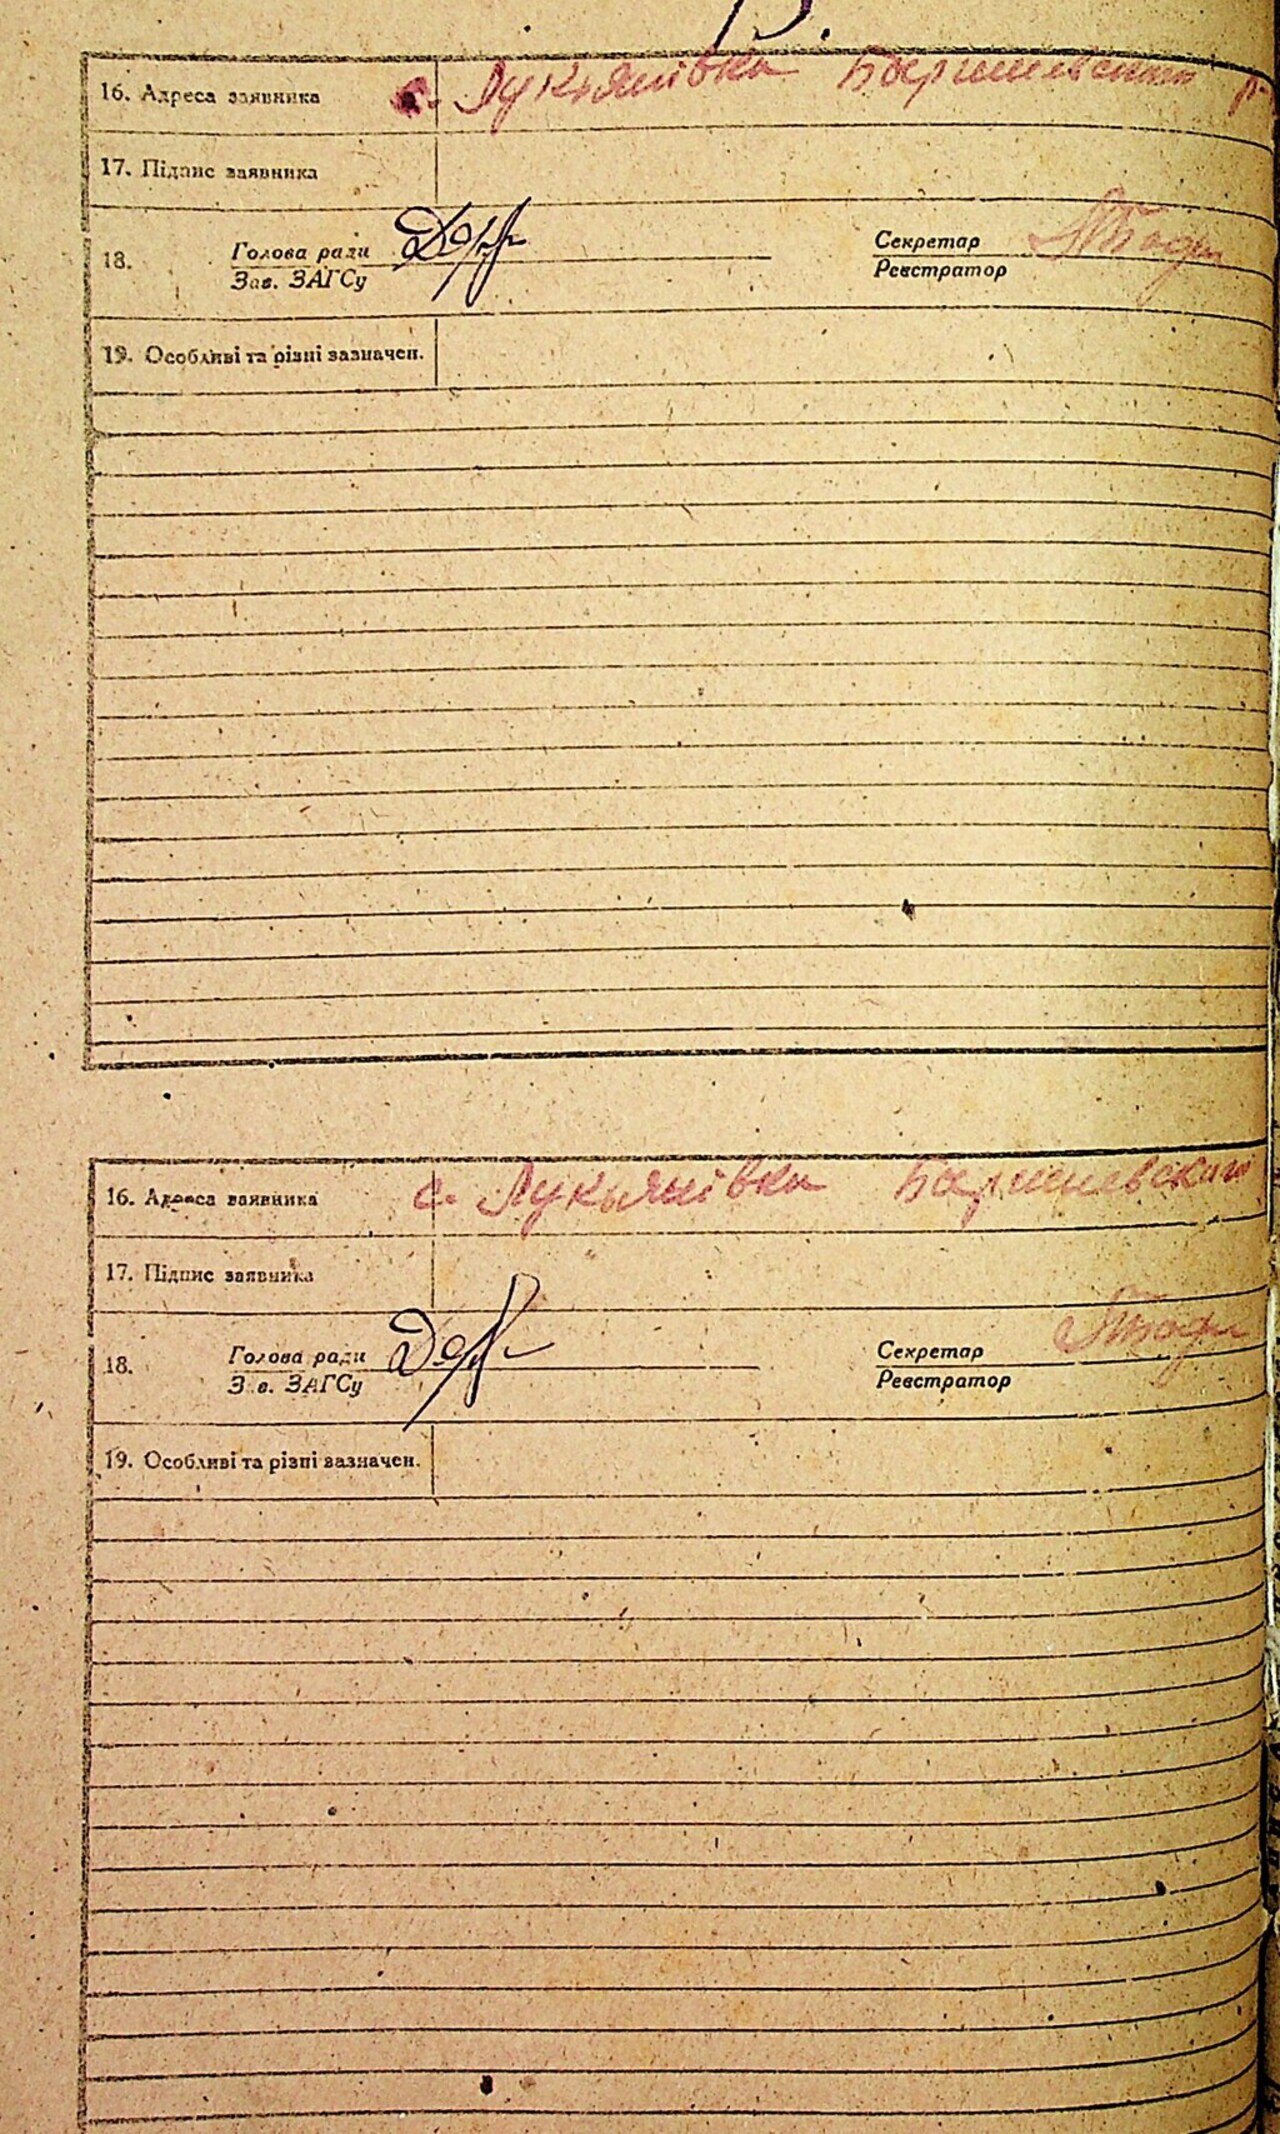 16. Адреса заявника с. Лукьянівка Баришевского р.
17. Підпис заявника
18. Голова ради Секретар
Зав. ЗАГСу Реєстратор
19. Особливі та різні зазначен.
16. Адреса заявника с. Лукьянівка Баришевского
17. Підпис заявника
18. Голова ради Секретар
Зав. ЗАГСу Реєстратор
19. Особливі та різні зазначен.